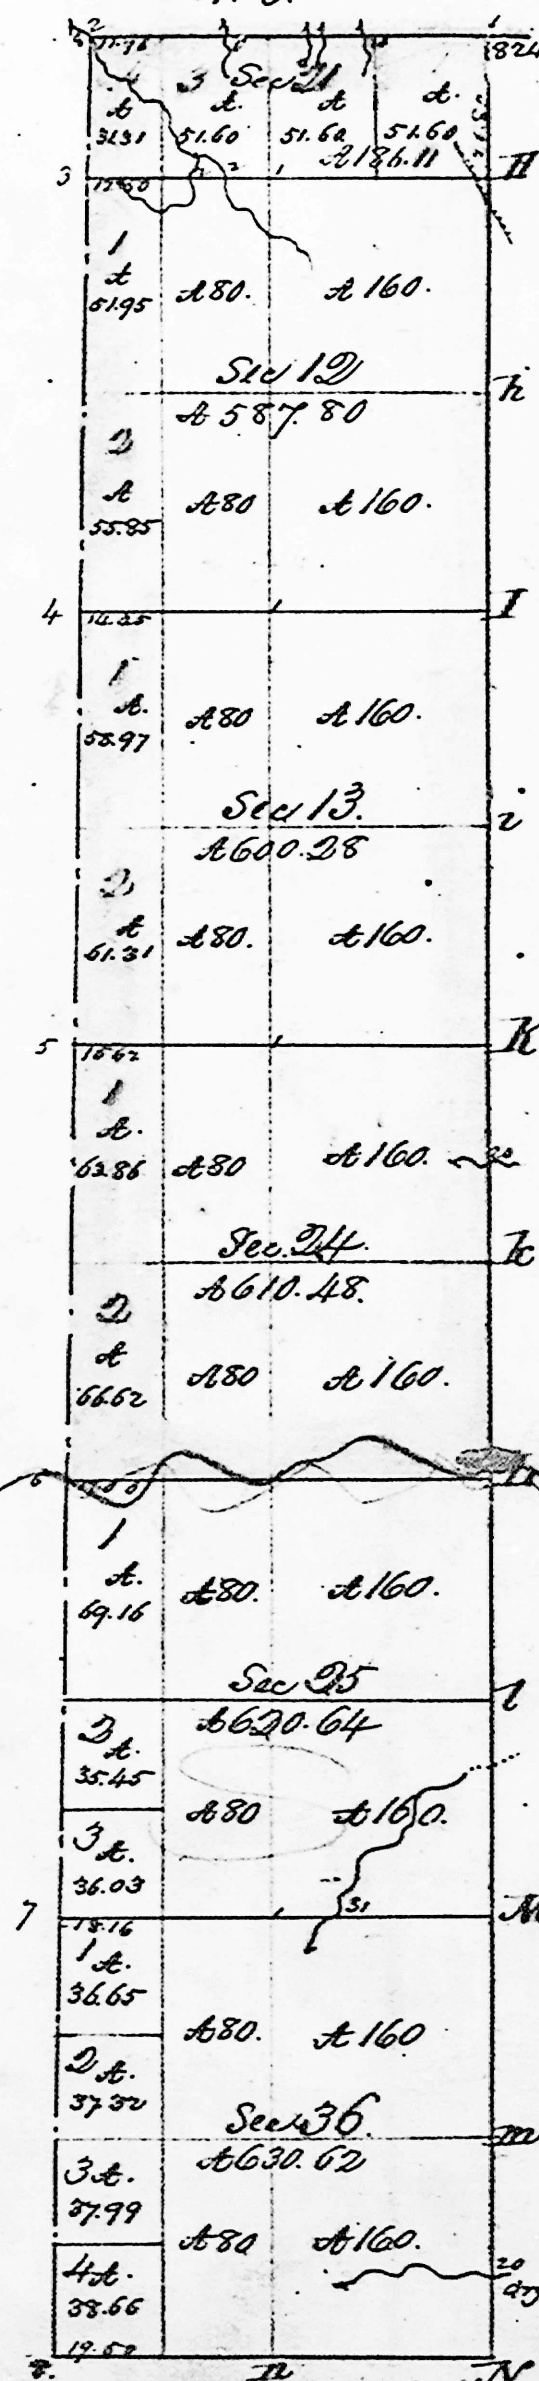 2 1
11.76 1824
4 3 Sec 21
A A. A A.
31.31 51.60 51.60 51.60
A 186.11
3 12.50 H
1
A
51.95 A 80. A 160.
Sec 12 h
A 587.80
2
A
55.85 A 80 A 160.
4 14.25 I
1
A.
58.97 A 80 A 160.
Sec 13. i
A 600.28
2
A
61.31 A 80. A 160.
5 15.62 K
1
A.
63.86 A 80 A 160.
Sec. 24. k
A 610.48.
2
A
66.62 A 80 A 160.
6
1
A.
69.16 A 80. A 160.
Sec 25 l
A 620.64
2 A.
35.45
A 80 A 160.
3 A.
36.03
7 18.16 31 M
1 A.
36.65
A 80. A 160
2 A.
37.32
Sec 36. m
A 630.62
3 A.
37.99
A 80 A 160.
4 A. 20
38.66 dry
19.50
8. n N